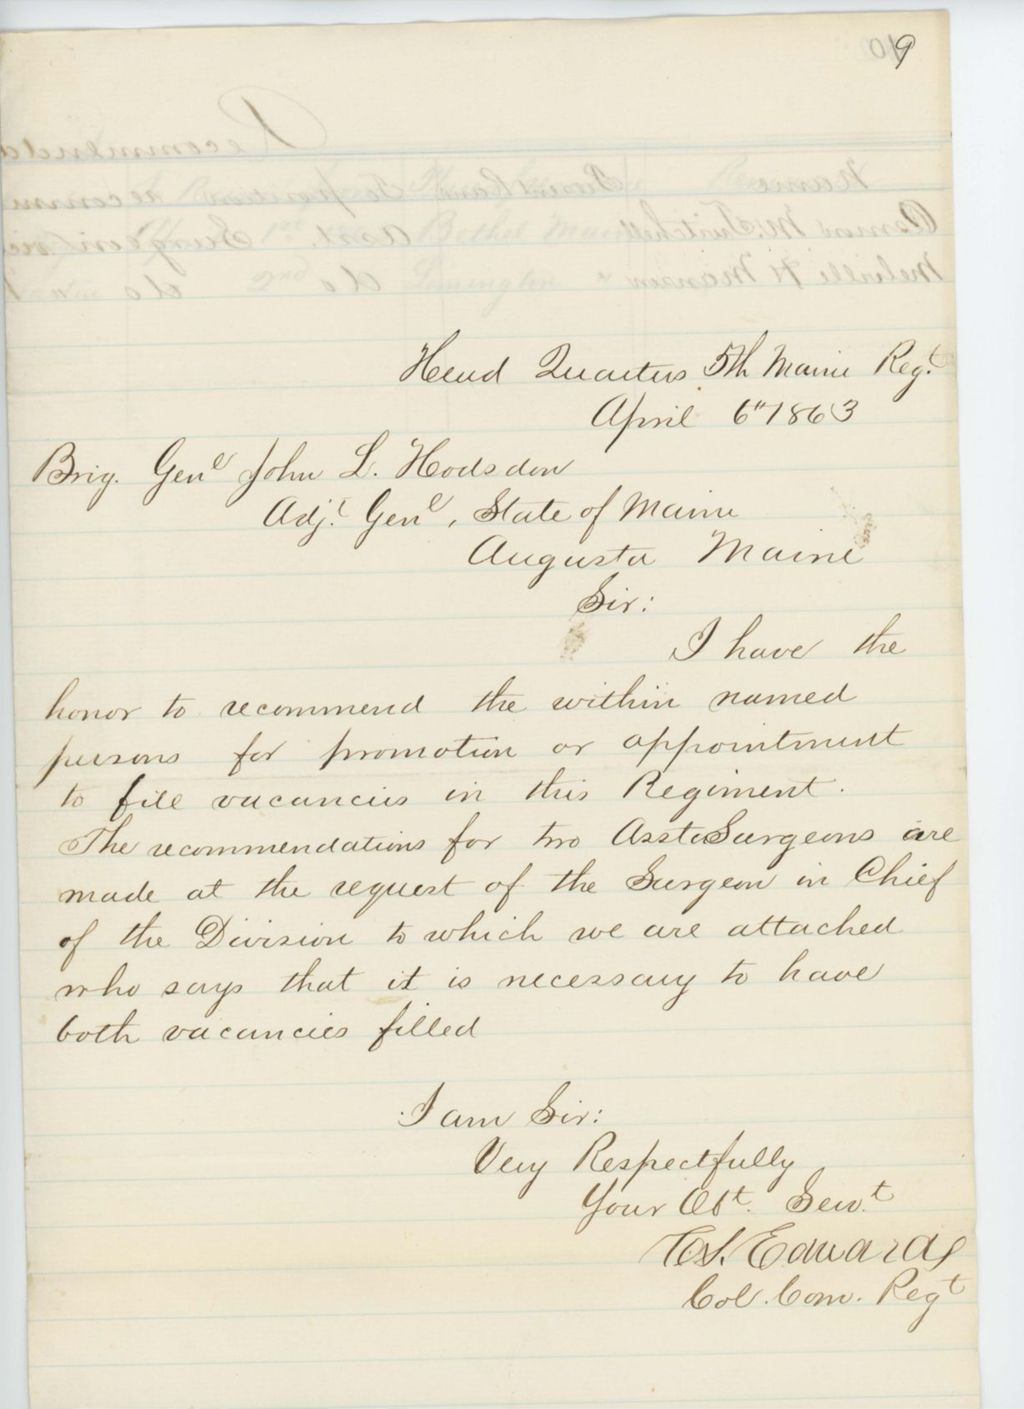 9
Head Quarters 5th Maine Regt.
April 6th 1863
Brig. Genl John L. Hodsdon
Adjt. Genl, State of Maine
Augusta Maine
Sir:
I have the
honor to recommend the within named
persons for promotion or appointment
to fill vacancies in this Regiment.
The recommendations for two Asst Surgeons are
made at the request of the Surgeon in Chief
of the Division to which we are attached
who says that it is necessary to have
both vacancies filled
I am Sir:
Very Respectfully
Your Obt. Servt.
C.S. Edwards
Col. Com. Regt